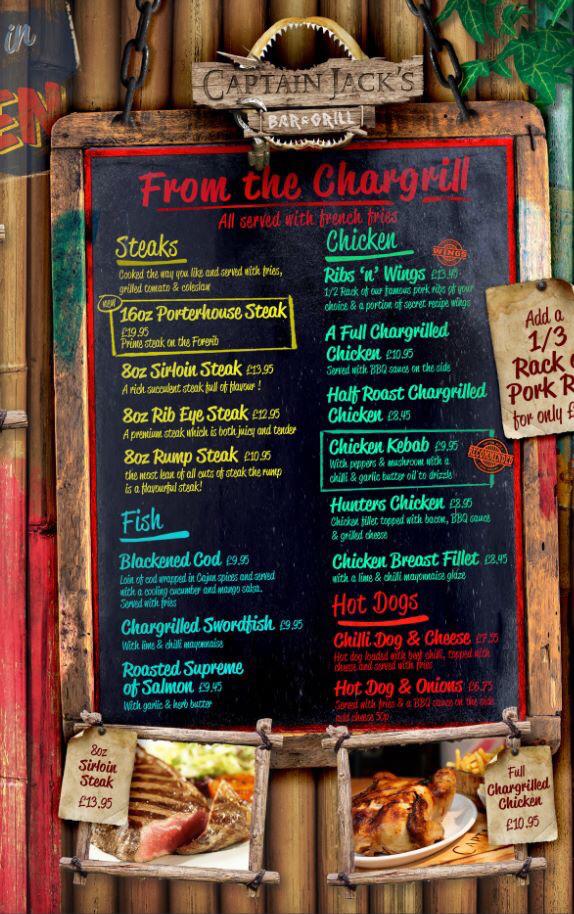 in
EN
CAPTAIN JACK'S
BAR & GRILL
From the Chargrill
All served with french fries
Steaks
Cooked the way you like and served with fries,
grilled tomato & coleslaw
NEW
16oz Porterhouse Steak
£19.95
Prime steak on the Forerib
8oz Sirloin Steak £13.95
A rich succulent steak full of flavour !
8oz Rib Eye Steak £12.95
A premium steak which is both juicy and tender
8oz Rump Steak £10.95
the most lean of all cuts of steak the rump
is a flavourful steak!
Fish
Blackened Cod £9.95
Loin of cod wrapped in Cajun spices and served
with a cooling cucumber and mango salsa.
Served with fries
Chargrilled Swordfish £9.95
With lime & chilli mayonnaise
Roasted Supreme
of Salmon £9.45
With garlic & herb butter
Chicken
WINGS
Ribs 'n' Wings £13.45
1/2 Rack of our famous pork ribs of your
choice & a portion of secret recipe wings
A Full Chargrilled
Chicken £10.95
Served with BBQ sauce on the side
Half Roast Chargrilled
Chicken £8.45
Chicken Kebab £9.95
RECOMMENDED
With peppers & mushroom with a
chilli & garlic butter oil to drizzle
Hunters Chicken £8.95
Chicken fillet topped with bacon, BBQ sauce
& grilled cheese
Chicken Breast Fillet £8.45
with a lime & chilli mayonnaise glaze
Hot Dogs
Chilli Dog & Cheese £7.55
Hot dog loaded with beef chilli, topped with
cheese and served with fries
Hot Dog & Onions £6.75
Served with fries & a BBQ sauce on the side
add cheese 50p
Add a
1/3
Rack
Pork R
for only £
8oz
Sirloin
Steak
£13.95
Full
Chargrilled
Chicken
£10.95